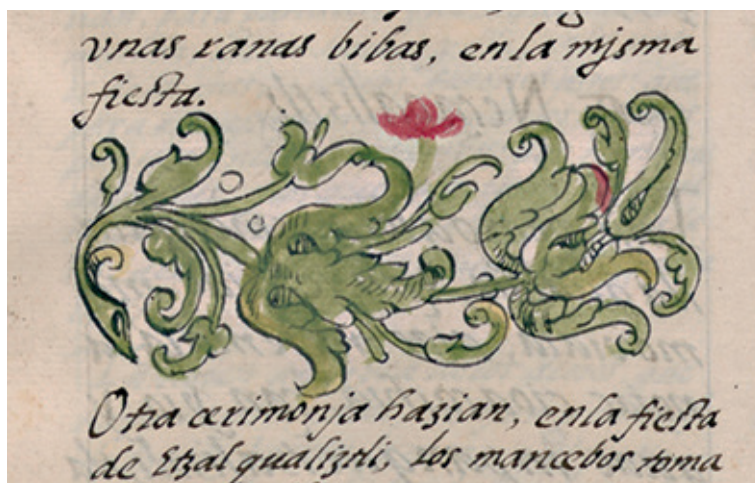 vnas ranas bibas, en la mjsma
fiesta.
Otra cerimonja hazian, en la fiesta
de Etzalqualiztli, los mancebos toma